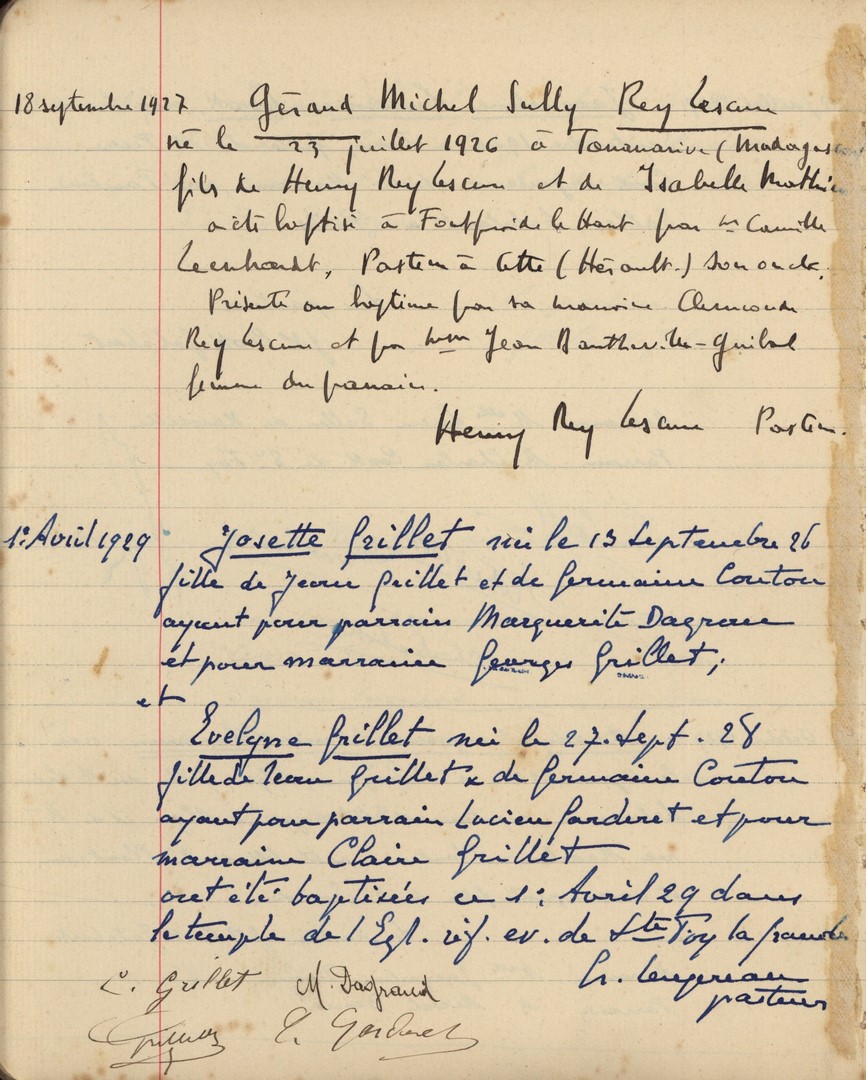 18 septembre 1927 Gérard Michel Sully Rey Lescure
né le 23 juillet 1926 à Tananarive (Madagascar
fils de Henry Rey Lescure et de Isabelle Mathieu
a été baptisé à Fontfroide le Haut par Mr Camille
Leenhardt, Pasteur à Cette (Hérault.) son oncle.
Présenté au baptême par sa marraine
Rey Lescure et par Mme Jean
femme du parrain.
Henry Rey Lescure Pasteur.
1er Avril 1929 Josette Grillet née le 13 Septembre 26
fille de Jean Grillet et de Germaine Couton
ayant pour parrain Marguerite Dagrau
et pour marraine Georges Grillet ;
et
Evelyne Grillet née le 27. Sept. 28
fille de Jean Grillet & de Germaine Couton
ayant pour parrain Lucien Garderet et pour
marraine Claire Grillet
ont été baptisées ce 1er Avril 29 dans
le temple de l'Egl. réf. ev. de Ste Foy la Grande
pasteur
C. Grillet M. Dagraud
Garderet